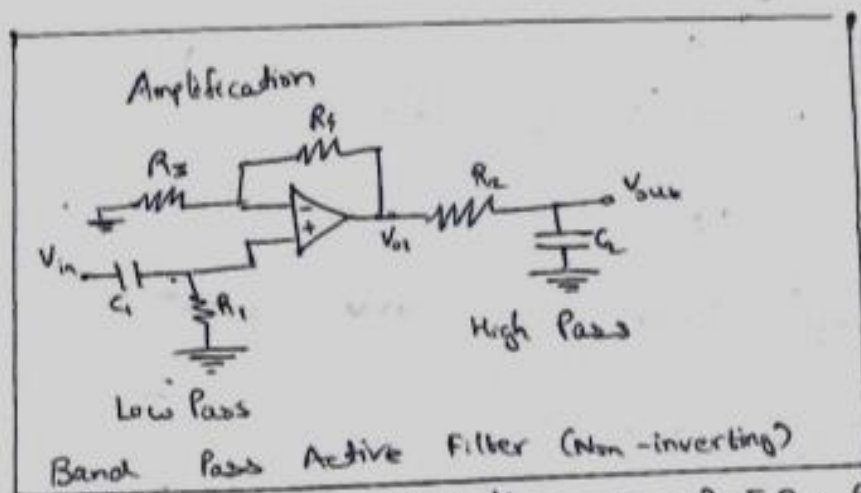 Amplification
R4
R3
R2
Vout
Vin
Vo1
C2
C1
R1
High Pass
Low Pass
Band Pass Active Filter (Non-inverting)